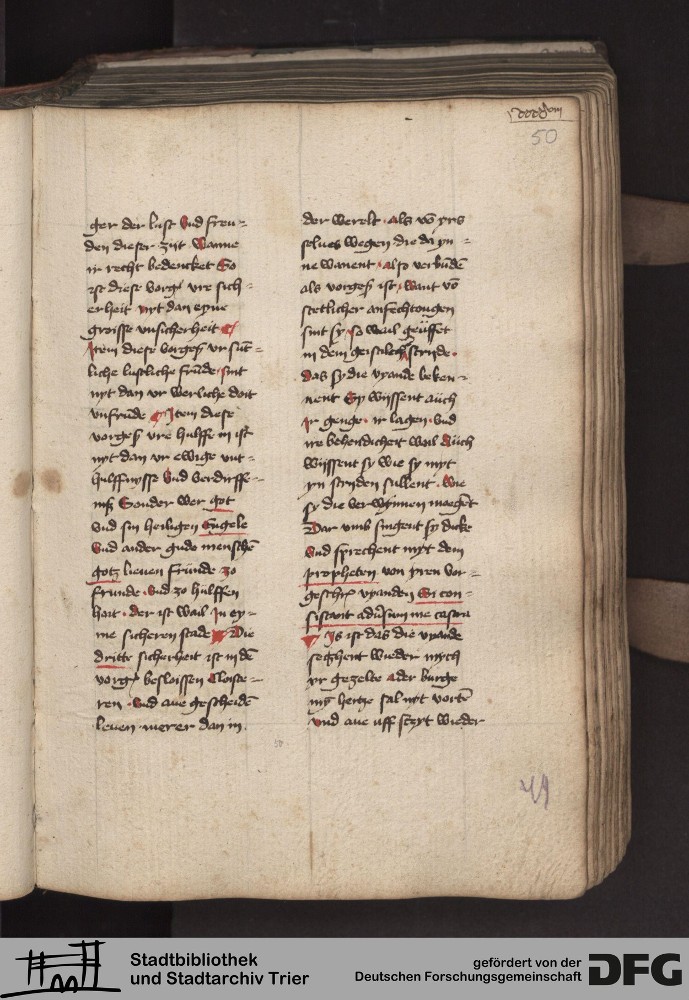 50
ger der lust Vnd freu⸗
den dieser zijt Wanne
ir recht bedencket So
ist diese vorgẜ vre sich⸗
erheit nyt dan eyne
groisse vnsicherheit ¶
Item diese vorgeẜ vr sūt⸗
liche lustliche frūde sint
nyt dan vr werliche doit
vnfrude ¶ Item diese
vorgeẜ vre hulffe in ist
nyt dan vr ewige vnt⸗
hulffnysse Vnd verdirffe⸗
niß Sonder wer got
vnd sin heiligen Engele
Vnd ander gude menschē
gotz lieuen fründe zo
frunde Vnd zo hulffen
hait der ist wail In ey⸗
me sicheren stade Die
dritte sicherheit ist in dē
vorgẜ besloissen Cloiste⸗
ren Vnd aue gescheidē
leuen merer dan in
der werelt als vō yrs
selues wegen die da yn⸗
ne wanent also verbūdē
als vorgeẜ ist want vō
stetlicher anfechtongen
sint sy so wail geüffet
in dem geistlich stryde
das sy die vyande beken⸗
nent Sy wyssent auch
ir genge ir lagen Vnd
ire behendicheit wail Auch
wyssent sy wie sy myt
yn stryden sullent wie
sy die verwynnen moegēt
Dar vmb singent sy dicke
Vnd sprechent myt dem
propheten von yren vor⸗
geschẜ vyanden Si con⸗
sistant adūsum me castra
Is ist das die vyande
seghent wieder mych
yr gezelte ader burge
myn hertze sal nyt vortē
Vnd aue vff steyt wieder
50
49
Stadtbibliothek
und Stadtarchiv Trier
gefördert von der
Deutschen Forschungsgemeinschaft
DFG